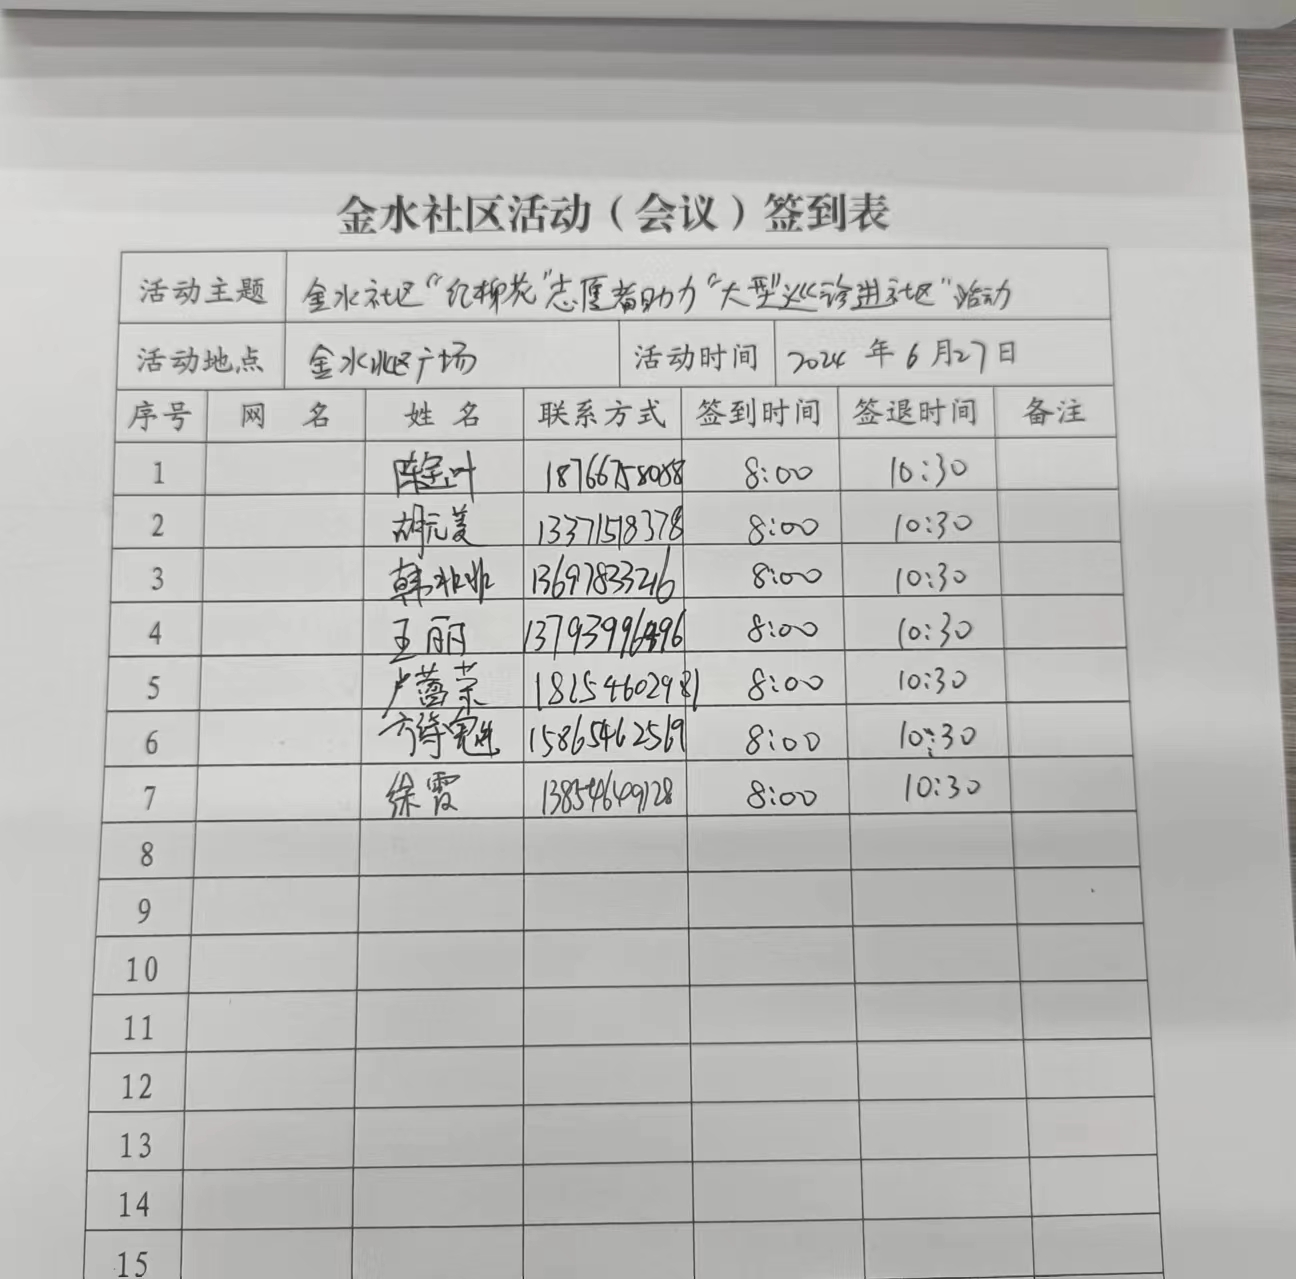 金水社区活动（会议）签到表
活动主题 金水社区“红柳花”志愿者助力“大型巡诊进社区”活动
活动地点 金水社区广场 活动时间 2024年6月27日
序号 网名 姓名 联系方式 签到时间 签退时间 备注
1 18766758088 8:00 10:30
2 胡元美 13371518378 8:00 10:30
3 韩 13697833246 8:00 10:30
4 王丽 8:00 10:30
5 卢 荣 18254602981 8:00 10:30
6 15865462569 8:00 10:30
7 徐霞 13854649128 8:00 10:30
8
9
10
11
12
13
14
15